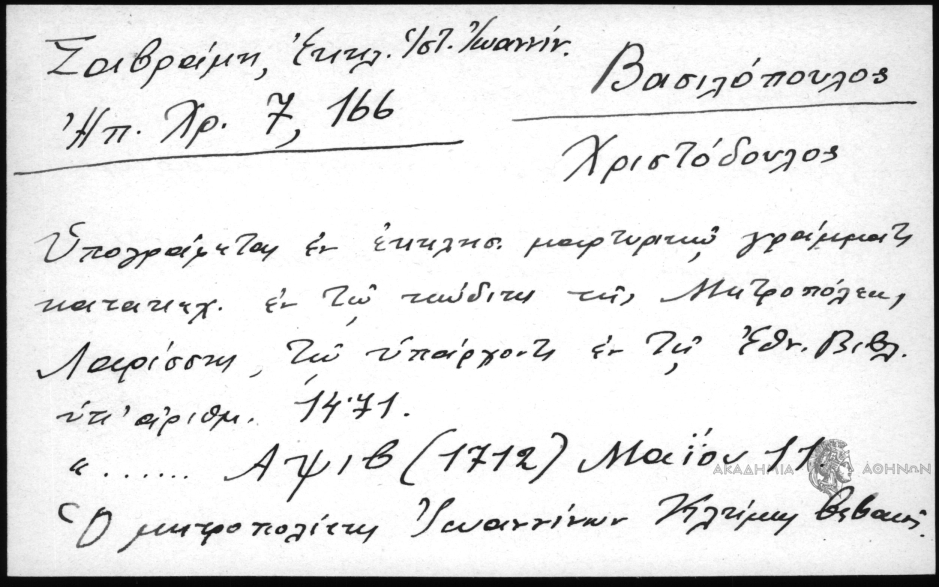 Σαβράμη, Ἐκκλ. Ἱστ. Ἰωαννίν.
Ἠπ. Χρ. 7, 166
Βασιλόπουλος
Χριστόδουλος
Ὑπογράφεται ἐν ἐκκλησ. μαρτυρικῷ γράμματι
κατακεχ. ἐν τῷ κώδικι τῆς Μητροπόλεως
Λαρίσσης, τῷ ὑπάρχοντι ἐν τῇ Ἐθν. Βιβλ.
ὑπ' ἀριθμ. 1471.
«...... Αψιβ (1712) Μαΐου 11.
ΑΚΑΔΗΜΙΑ ΑΘΗΝΩΝ
Ὁ μητροπολίτης Ἰωαννίνων Κλήμης βεβαιοῖ.